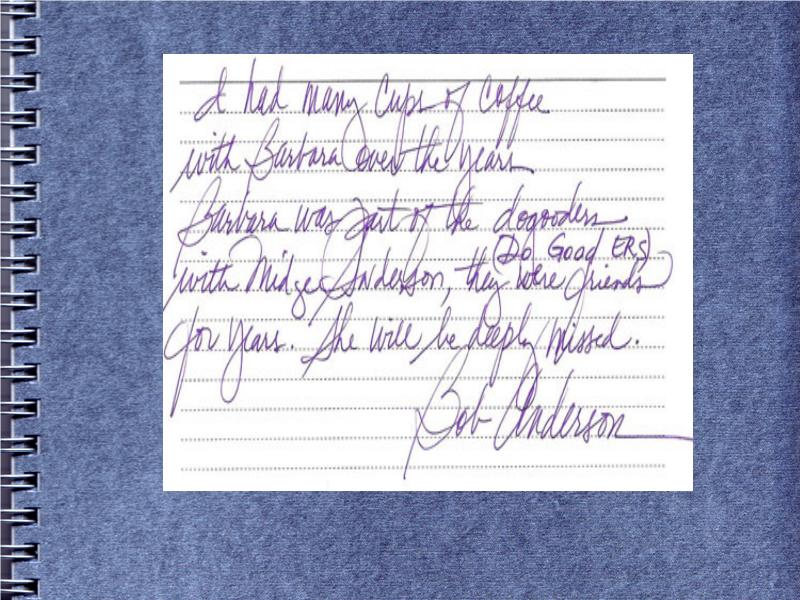 I had many cups of coffee
with Barbara over the years
Barbara was part of the dogooders
(Do Good ERS)
with Midge Anderson, they were friends
for years. She will be deeply missed.
Bob Anderson